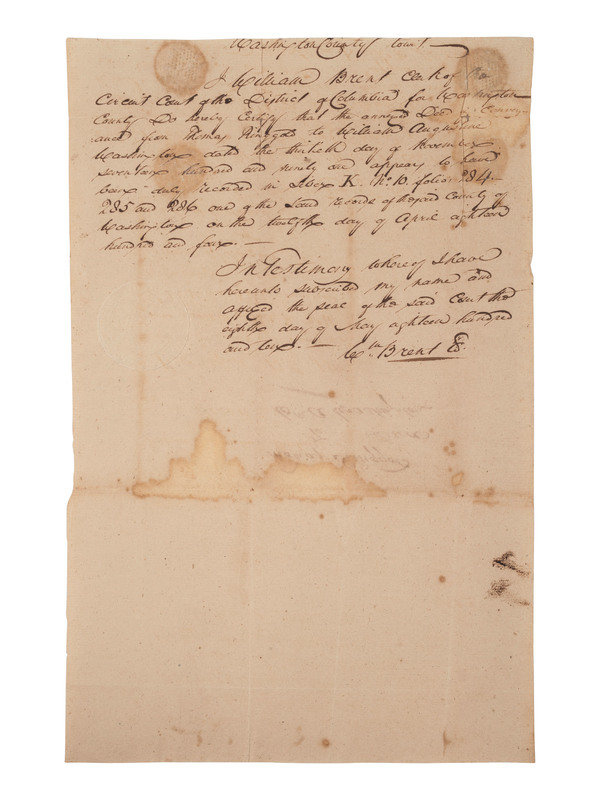 Washington County Court
I William Brent Clerk of the
Circuit Court of the District of Columbia for Washington
County Do hereby Certify that the annexed Deed of Convey-
ance from Thomas Ringold to William Augustine
Washington dated the thirtieth day of November
seventeen hundred and ninety one appears to have
been duly recorded in Liber K. No. 10. folios 284.
285 and 286 one of the Land records of the said County of
Washington on the twelfth day of April eighteen
hundred and four —
In Testimony whereof I have
hereunto subscribed my name and
affixed the seal of the said Court the
eighth day of May eighteen hundred
and ten. —
Wm Brent Clk.